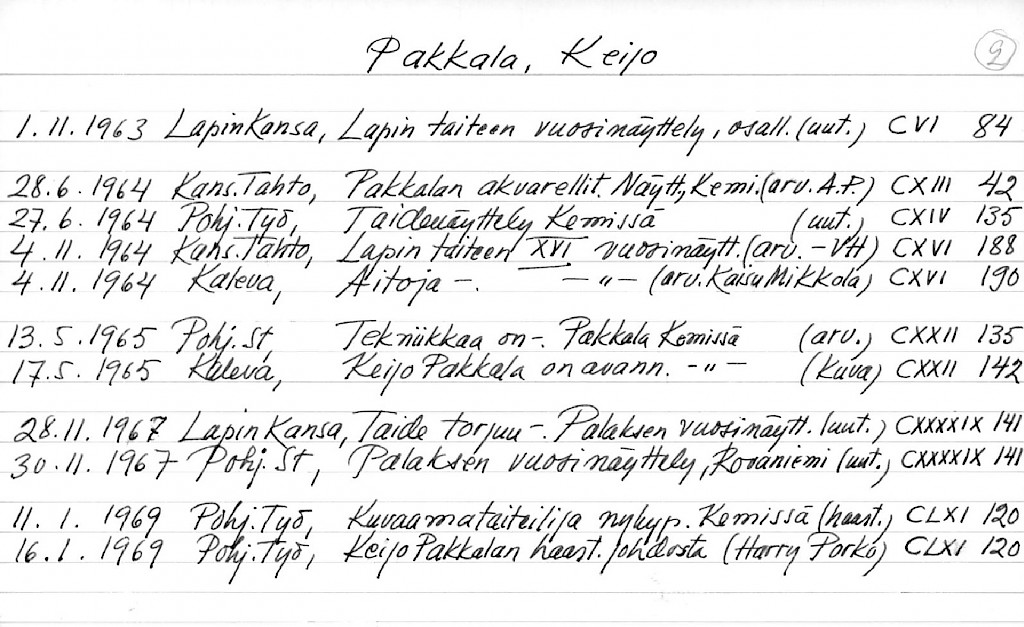 Pakkala, Keijo 2
1.11.1963 Lapin Kansa, Lapin taiteen vuosinäyttely, osall. (uut.) CVI 84
28.6.1964 Kans.Tahto, Pakkalan akvarellit. Näytt, Kemi. (arv. A.P.) CXIII 42
27.6.1964 Pohj.Työ, Taidenäyttely Kemissä (uut.) CXIV 135
4.11.1964 Kans.Tahto, Lapin taiteen XVI vuosinäytt. (arv. - VH) CXVI 188
4.11.1964 Kaleva, Aitoja -. - " - (arv. Kaisu Mikkola) CXVI 190
13.5.1965 Pohj.St, Tekniikkaa on -. Pakkala Kemissä (arv.) CXXII 135
17.5.1965 Kaleva, Keijo Pakkala on avann. - " - (kuva) CXXII 142
28.11.1967 Lapin Kansa, Taide torjuu -. Palaksen vuosinäytt. (uut.) CXXXXIX 141
30.11.1967 Pohj.St, Palaksen vuosinäyttely, Rovaniemi (uut.) CXXXXIX 141
11.1.1969 Pohj.Työ, Kuvaamataiteilija nykyp. Kemissä (haast.) CLXI 120
16.1.1969 Pohj.Työ, Keijo Pakkalan haast. johdosta (Harry Porko) CLXI 120